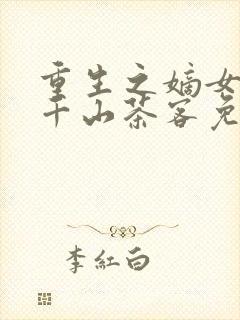 重生之嫡女
千山茶客免
李紅白